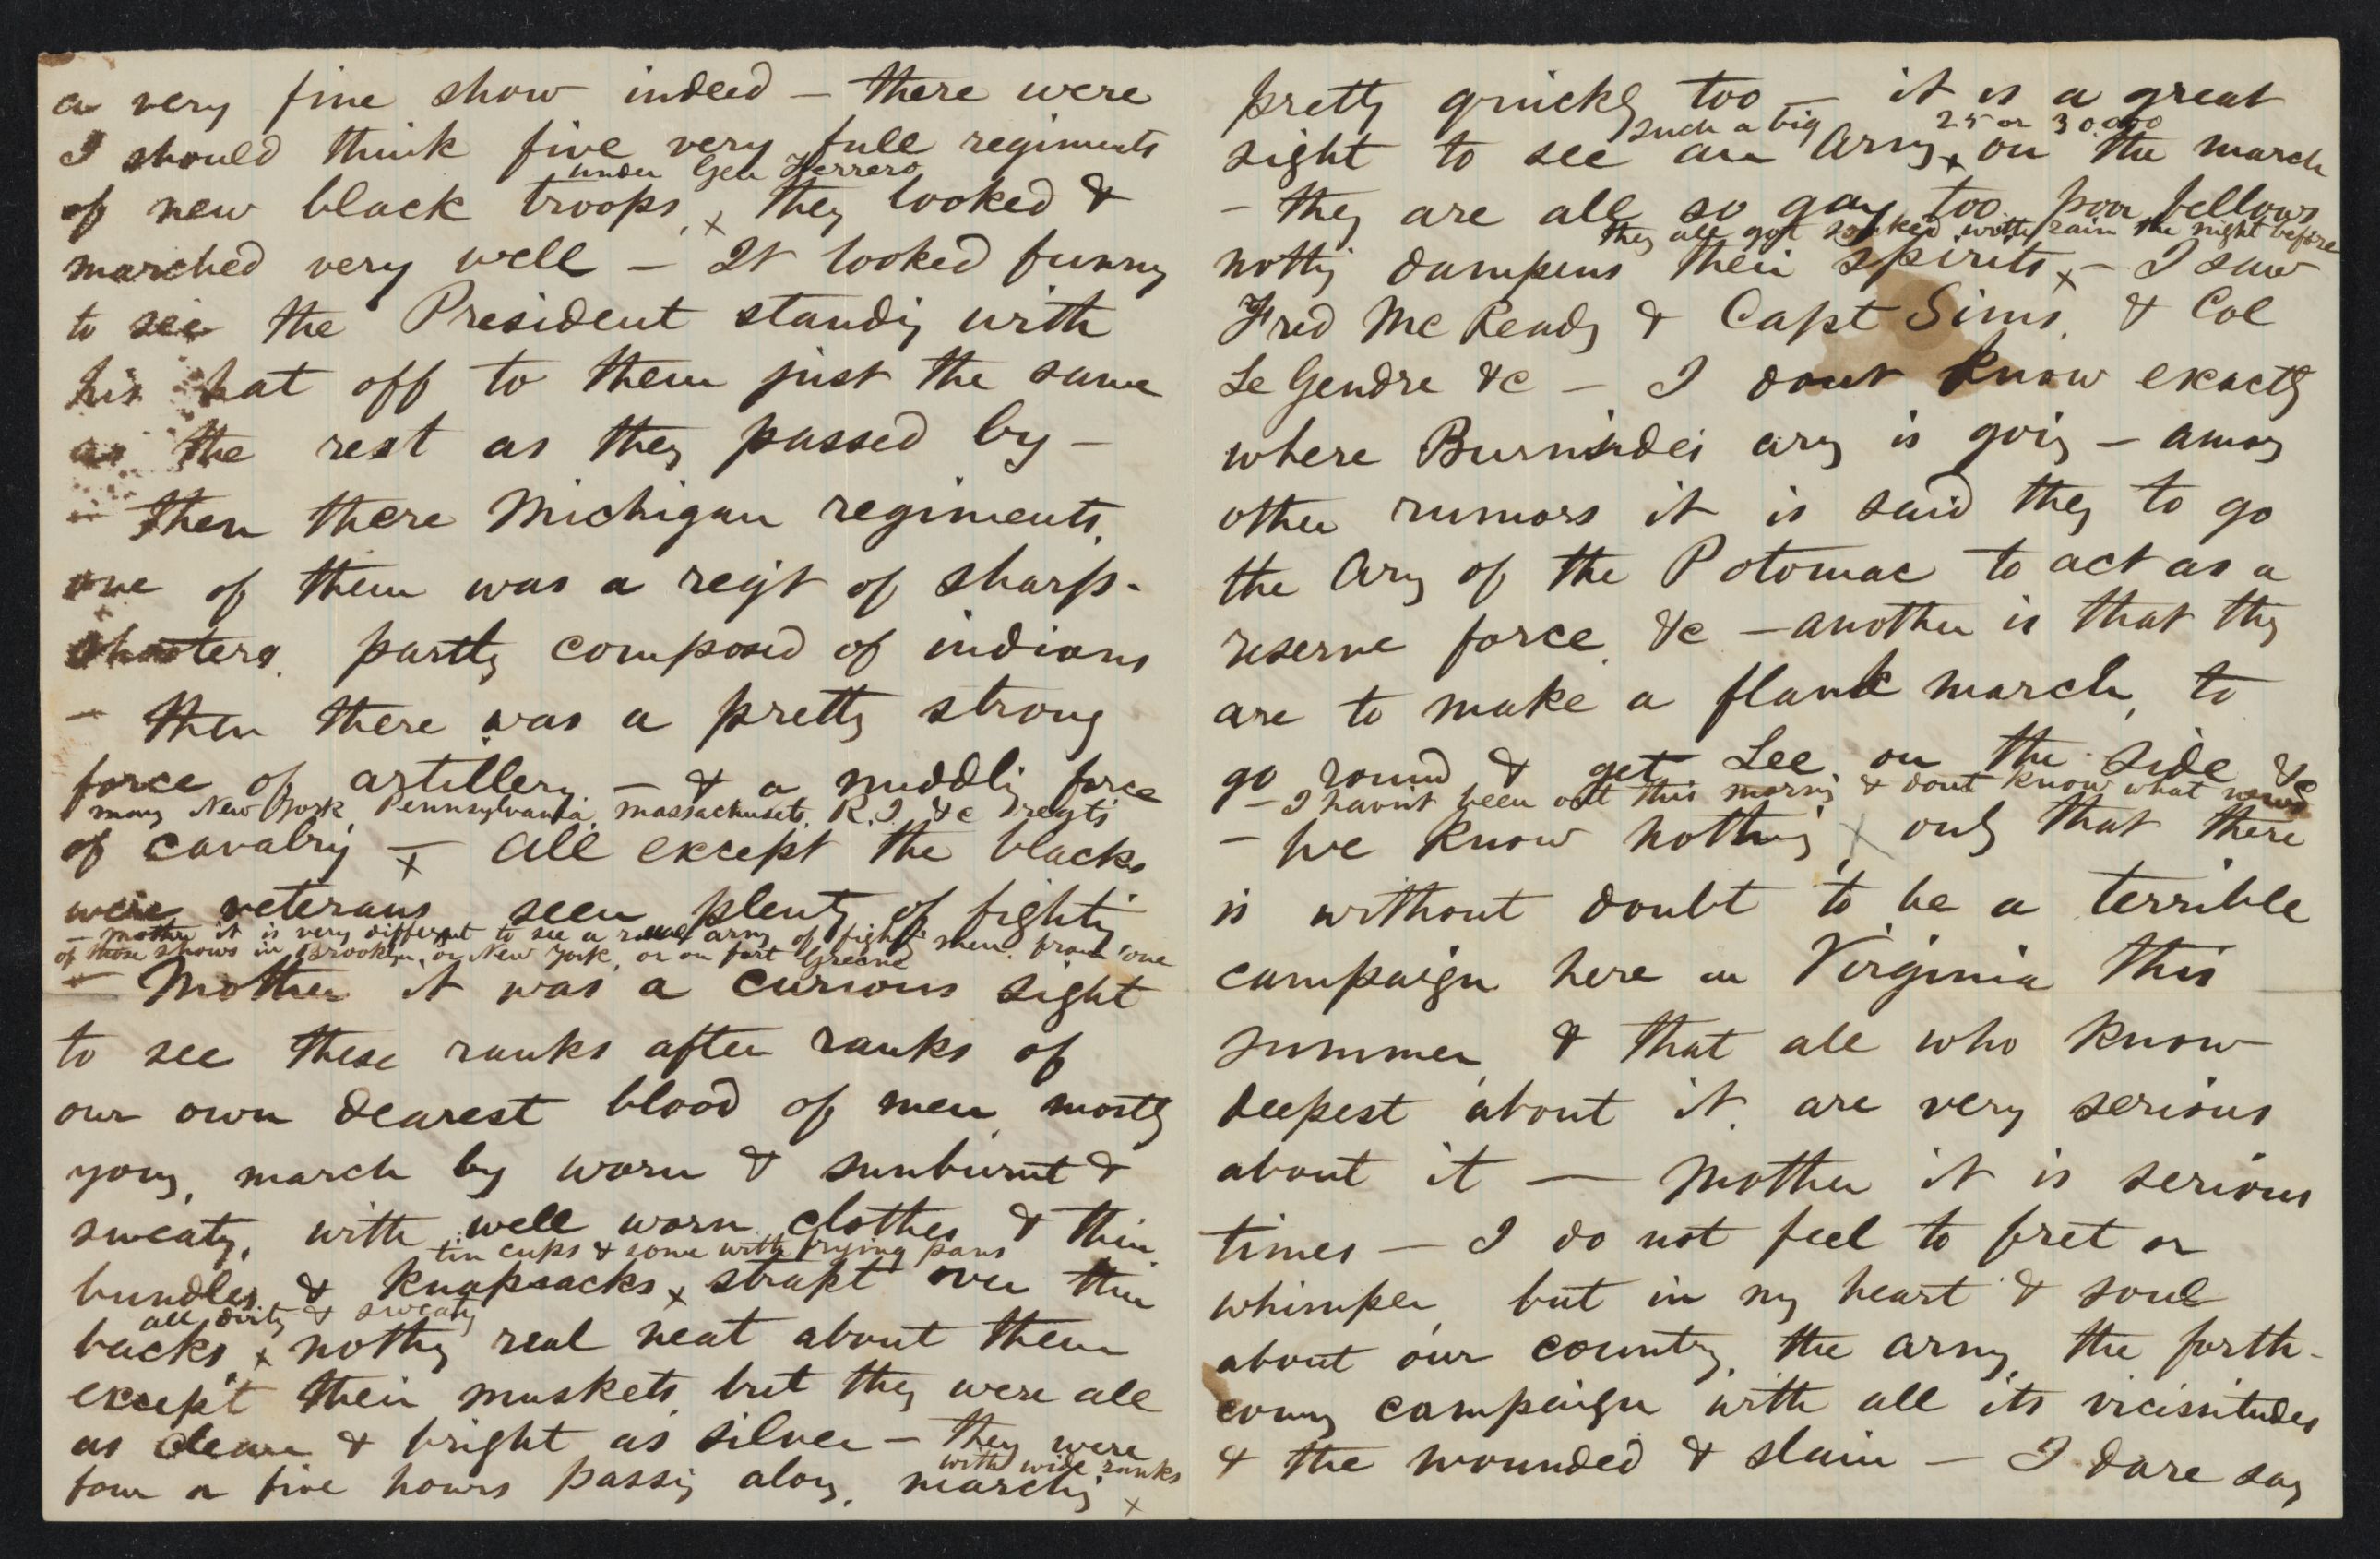 a very fine show indeed — there were
I should think five very full regiments
under Gen Ferrero
of new black troops, x they looked &
marched very well — It looked funny
to see the President standig with
his hat off to them just the same
as the rest as they passed by —
— then there Michigan regiments,
one of them was a regt of sharp-
shooters, partly composed of indians
— then there was a pretty strong
force of artillery — & a middlig force
many New York, Pennsylvania, Massachusets, R.I. &c regts
of cavalry x — all except the blacks
were veterans seen plenty of fightig
— mother it is very different to see a real army of fightig men, from one
of those shows in Brooklyn, or New York, or on fort Greene
— Mother it was a curious sight
to see these ranks after ranks of
our own dearest blood of men, mostly
young, march by worn & sunburnt &
sweaty, with well worn clothes & their
tin cups & some with frying pans
bundles, & knapsacks, x strapt over their
all dirty & sweaty
backs, x nothg real neat about them
except their muskets, but they were all
as clean & bright as silver — they were
with wide ranks
four or five hours passig along, marchig x
pretty quickly too — it is a great
such a big 25 or 30.000
sight to see an Army x on the march
— they are all so gay too. poor fellows
they all got soaked with rain the night before
nothig dampens their spirits x — I saw
Fred McReady & Capt Sims, & Col
Le Gendre &c — I dont know exactly
where Burnsides army is goig — among
other rumors it is said they to go
the Army of the Potomac to act as a
reserve force, &c — another is that they
are to make a flank march, to
go round & get Lee on the side &c
— I havn't been out this mornig & dont know what news
— we know nothig, x only that there
is without doubt to be a terrible
campaign here in Virginia this
summer, & that all who know
deepest about it, are very serious
about it — Mother it is serious
times — I do not feel to fret or
whimper, but in my heart & soul
about our country, the army, the forth-
coming campaign with all its vicissitudes
& the wounded & slain — I dare say